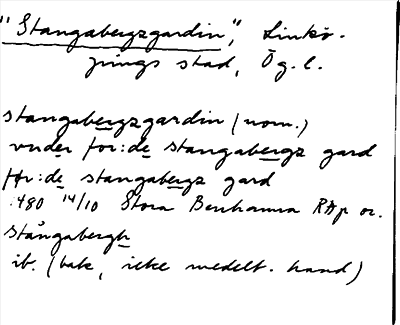 "Stangabergzgardin", Linkö-
pings stad, Ög. l.
stangabergzgardin (nom.)
vnder for:de stangabergz gard
for:de stangabergz gard
1480 14/10 Stora Benhamra RAp or.
Stångabergh
ib. (bak, icke medelt. hand)